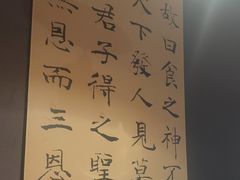 故曰食之神不
天下發人見莫
君子得之聖
恩而三恩